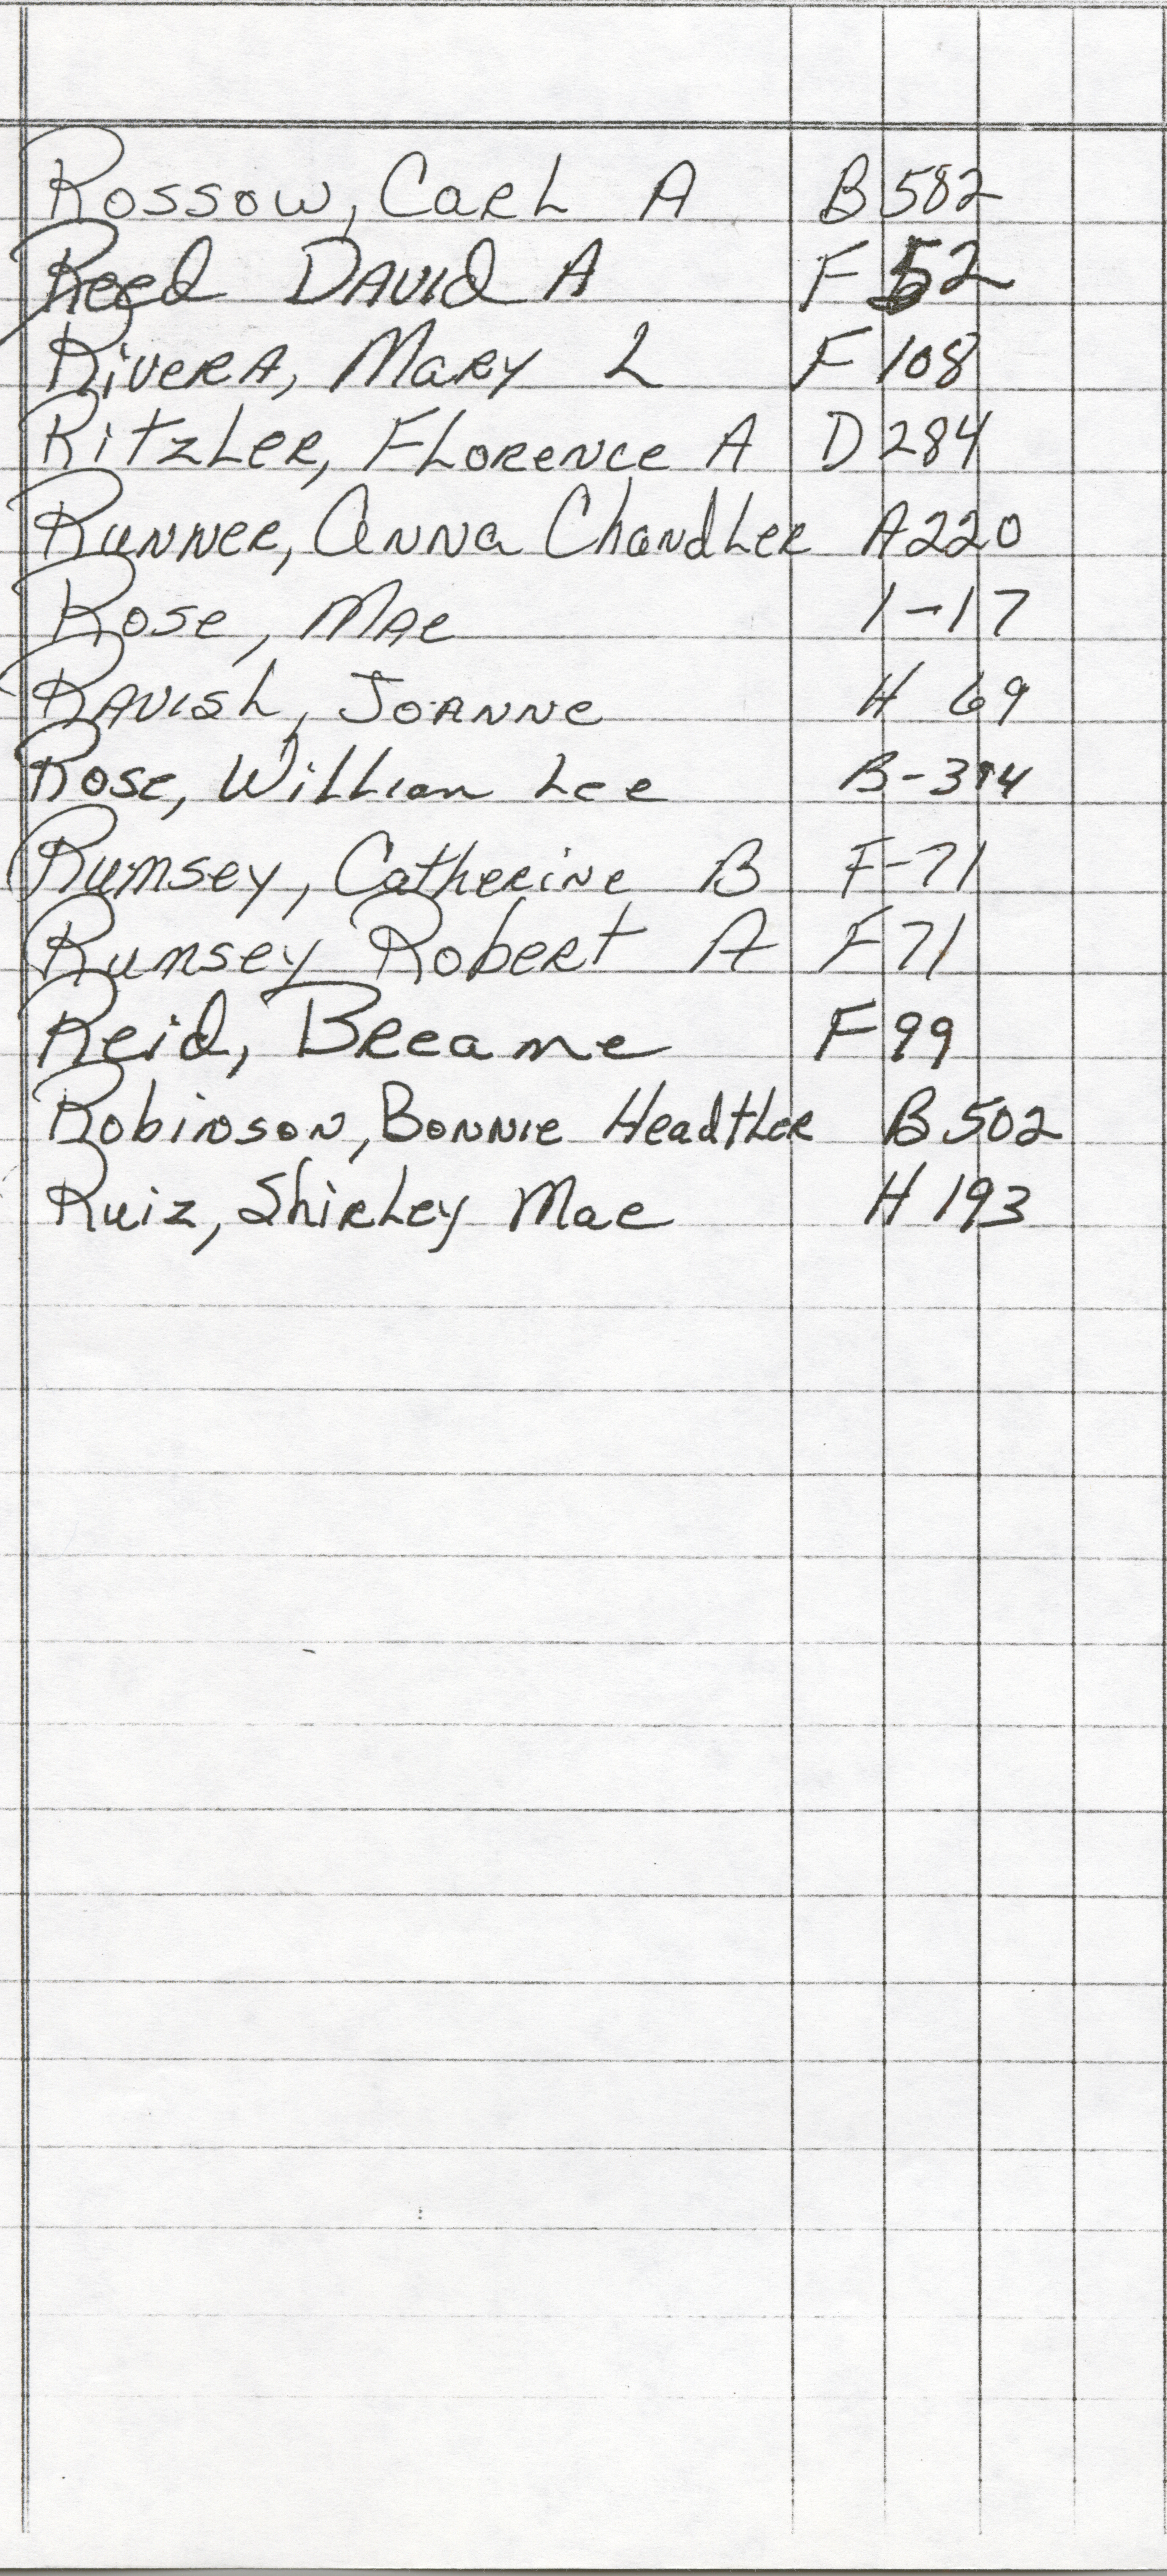 Rossow, Carl A B 582
Reed David A F 52
Rivera, Mary L F 108
Ritzler, Florence A D 284
Runner, Anna Chandler A220
Rose, Mae 1-17
Ravish, Joanne H 69
Rose, William Lee B-394
Rumsey, Catherine B F-71
Rumsey Robert A F 71
Reid, Breeanne F 99
Robinson, Bonnie Headtler B 502
Ruiz, Shirley Mae H 193